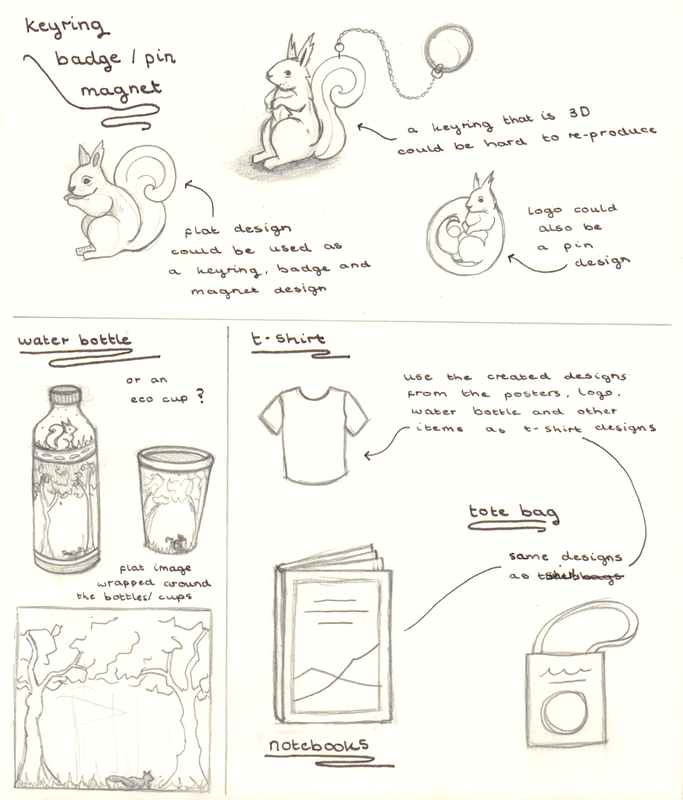 keyring
badge / pin
magnet
a keyring that is 3D
could be hard to re-produce
flat design
could be used as
a keyring, badge and
magnet design
logo could
also be
a pin
design
water bottle
or an
eco cup ?
flat image
wrapped around
the bottles/ cups
t-shirt
use the created designs
from the posters, logo,
water bottle and other
items as t-shirt designs
tote bag
same designs
as
notebooks